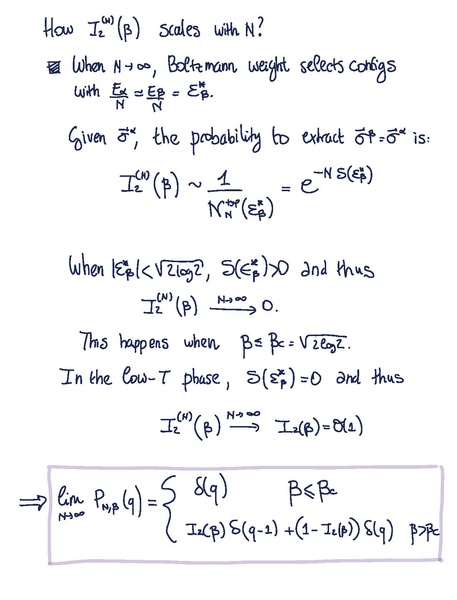 How I₂⁽ᴺ⁾(β) scales with N?
When N→∞, Boltzmann weight selects configs
with Eα/N ≃ Eβ/N = ε*β.
Given σ⃗ᵅ, the probability to extract σ⃗ᵝ = σ⃗ᵅ is:
I₂⁽ᴺ⁾(β) ~ 1/𝒩_N^{typ}(ε*β) = e^{-N S(ε*β)}
When |ε*β| < √(2log2), S(ε*β)>0 and thus
I₂⁽ᴺ⁾(β) —N→∞→ 0.
This happens when β ≤ βc = √(2log2).
In the low-T phase, S(ε*β)=0 and thus
I₂⁽ᴺ⁾(β) —N→∞→ I₂(β) = O(1)
⇒ lim_{N→∞} P_{N,β}(q) = { δ(q) β ≤ βc
I₂(β) δ(q-1) + (1 - I₂(β)) δ(q) β > βc